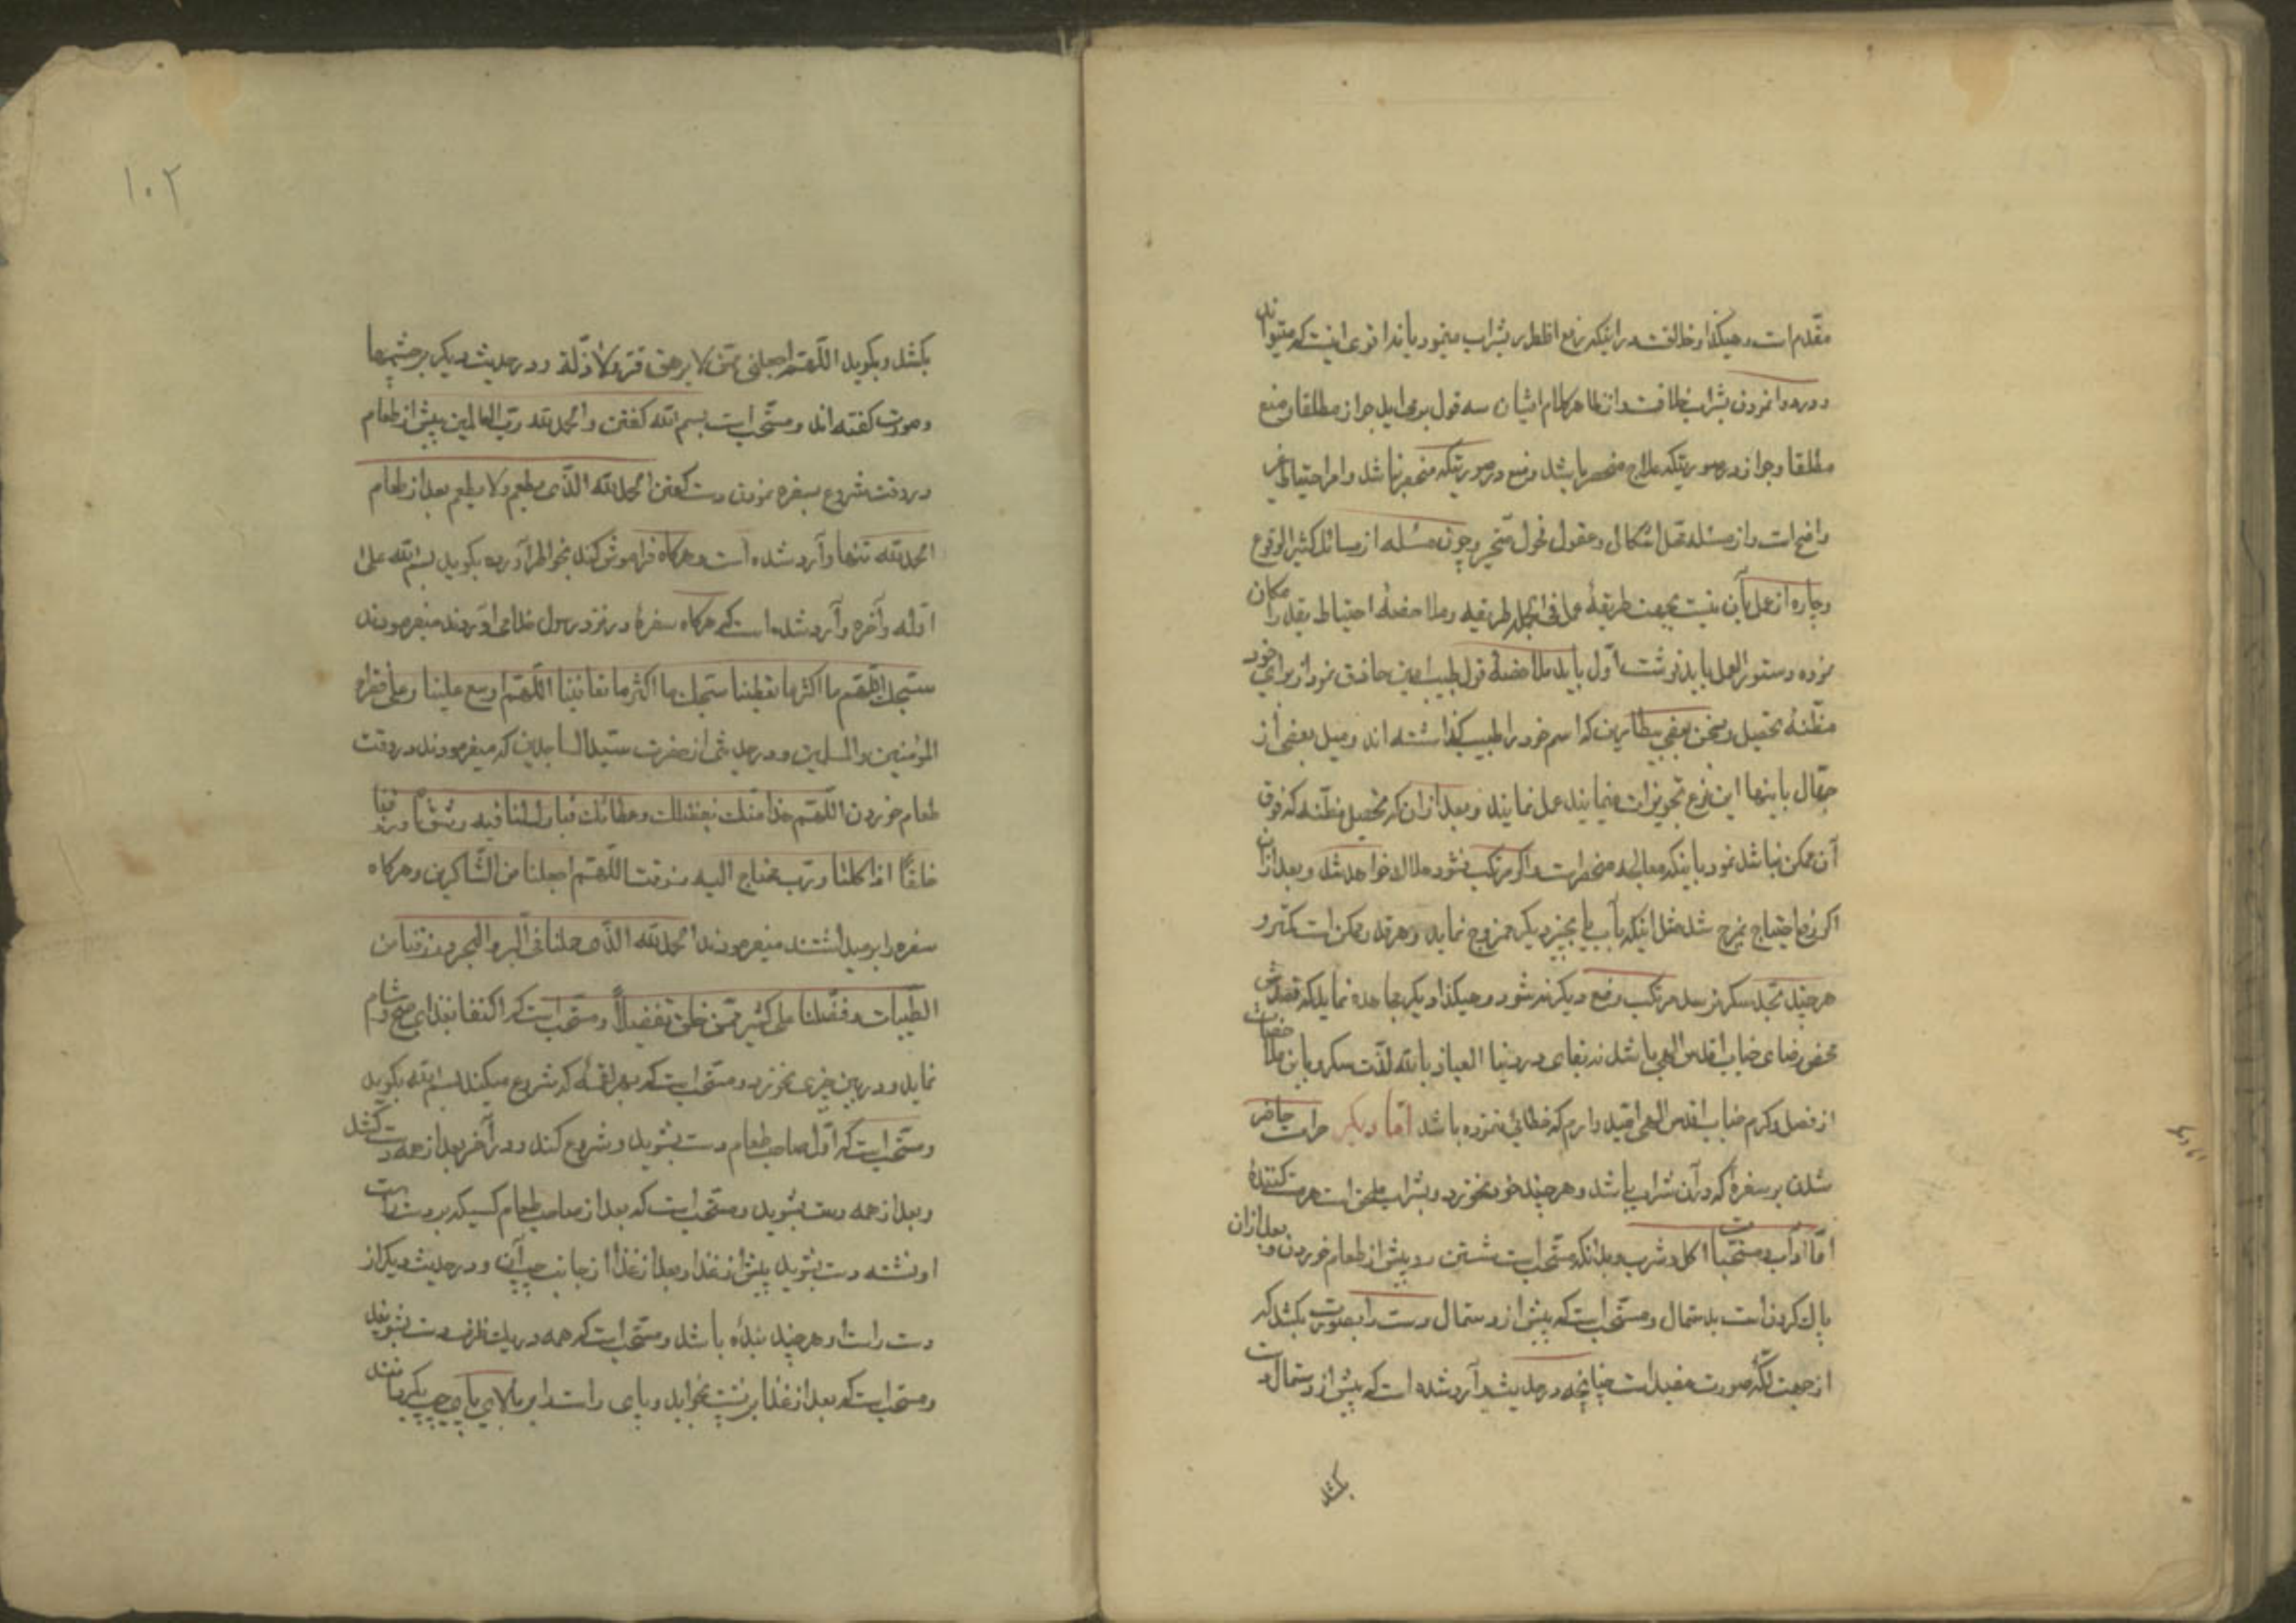 مقدم است و هیکذا و خلافست در اینکه رفع اضطرار بشراب مینمود یا نه اقوی اینست که میتواند
و در دوا نمودن بشراب خلافست و از ظاهر کلام ایشان سه قول برمی‌اید جواز مطلقا و منع
مطلقا و جواز در صورتیکه علاج منحصر باشد و منع در صورتیکه منحصر نباشد و امر احتیاط
واضح است و از مسئله محل اشکال و عقول فحول متحیر و چون مسئله از مسائل کثیر الوقوع
و چاره از عمل بآن نیست بجهت طریقهٔ عمل فی الجمله طریقه و ملاحضهٔ احتیاط بقدر امکان
نموده دستور العمل باید نوشت اول باید ملاحضهٔ قول طبیب امین حاذق نمود از برای خود
مظنه تحصیل و سخن بعضی بیطارین که اسم خود را طبیب کذاشته اند و میل بعضی از
جهال باینها این نوع تجویزات مینمایند عمل نمایند و بعد از ان که تحصیل مظنه که فوق
آن ممکن نباشد نمود باینکه معالجه منحصر است و اکر مرتکب نشود هلاک خواهد شد و بعد از ان
اکر رفع احتیاج بمزج شد مثل اینکه بآب یا بچیز دیکر ممزوج نماید و هر قدر ممکن است کمتر و
هر چند بحد سکر نرسد مرتکب و منع دیکر نه شود و هیکذا دیکر مجاهده نماید که قصدش
محض رضای جناب اقدس الهی باشد نه بقای در دنیا العیاذ بالله لذت سکر و باین ملاحضات
از فضل و کرم جناب اقدس الهی امید وارم که خطائی ننموده باشد اما دیکر حرامست حاضر
شدن بر سفرهٔ که در آن شراب باشد و هر چند خود نخورد و بشراب ملحق است هر مست کنندهٔ
اما آداب و مستحبات اکل و شرب بدانکه مستحب است شستن دو پیش از طعام خوردن و بعد از ان
پاک کردن است بدستمال و مستحب است که پیش از دستمال دست را بصورت بکشد که
از جهت لکهٔ صورت مفید است چنانچه در حدیث وارد شده است که پیش از دستمال دست
بکشد
۱۰۲
بکشد و بکوید اللهم اجعلنی ممن لا یرهق قتر ولا ذلة و در حدیث دیکر بر چشمها
و صورت کفته اند و مستحب است بسم الله کفتن و الحمد لله رب العالمین پیش از طعام
و در وقت شروع بسفره نمودن دست کفتن الحمد لله الذی یطعم ولا یطعم بعد از طعام
الحمد لله تنها وآرد شده است و هرکاه فراموش کند بخواطر آورده بکوید بسم الله علی
اوله و آخره وآرد شده است که هرکاه سفرهٔ در نزد رسول خدا می اوردند میفرمودند
سبحانک اللهم ما اکثر ما تعطینا سبحانک ما اکثر ما تعافینا اللهم اوسع علینا و علی فقراء
المؤمنین والمسلمین و در حدیثی از حضرت سید الساجدین که میفرمودند در وقت
طعام خوردن اللهم هذا منک بفضلک و عطائک فبارک لنا فیه وسوغنا وارزقنا
خلفاً اذا کلنا و رب محتاج الیه رزقت اللهم اجعلنا من الشاکرین و هرکاه
سفره را برمیداشتند میفرمودند الحمد لله الذی حملنا فی البر والبحر ورزقنا من
الطیبات وفضلنا علی کثیر ممن خلق تفضیلاً و مستحب است که اکتفا بغذای صبح و شام
نماید و در بین چیزی نخورد و مستحب است که بهر لقمه که شروع میکند بسم الله بکوید
و مستحب است که اول صاحب طعام دست بشوید و شروع کند و در آخر بعد از همه دست کشد
و بعد از همه دست بشوید و مستحب است که بعد از صاحب طعام کسیکه بر دست راست
او نشسته دست بشوید پیش از غذا و بعد از غذا از جانب چپ آن و در حدیث دیکر از
دست راست او هر چند بنده باشد و مستحب است که همه در یک ظرف دست بشویند
و مستحب است که بعد از غذا بر پشت بخوابد و پای راست را بر بالای پای چپ بکذارد